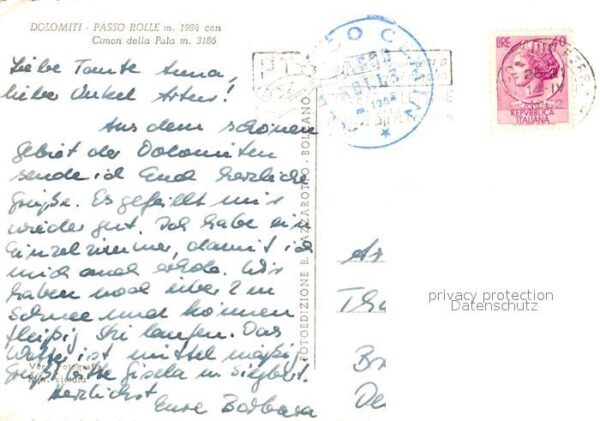 DOLOMITI - PASSO ROLLE m. 1984 con
Cimon della Pala m. 3186
Liebe Tante Anna,
lieber Onkel Artur!
Aus dem schönen
Gebiet der Dolomiten
sende ich Euch herzliche
Grüße. Es gefällt mir
wieder gut. Ich habe ein
Einzelzimmer, damit ich
mich auch erhole. Wir
haben noch über 2 m
Schnee und können
fleißig Ski laufen. Das
Wetter ist mittelmäßig.
Grüßt bitte Gisela u. Siegbert.
Herzlichst
Eure Barbara
Vera Fotografia
Rip. vietata
FOTOEDIZIONE B. LAZZAROTTO - BOLZANO
PASSO
ROLLE
m. 1984
LIRE 70
REPVBBLICA
ITALIANA
Ar
Th
Br
De
privacy protection
Datenschutz